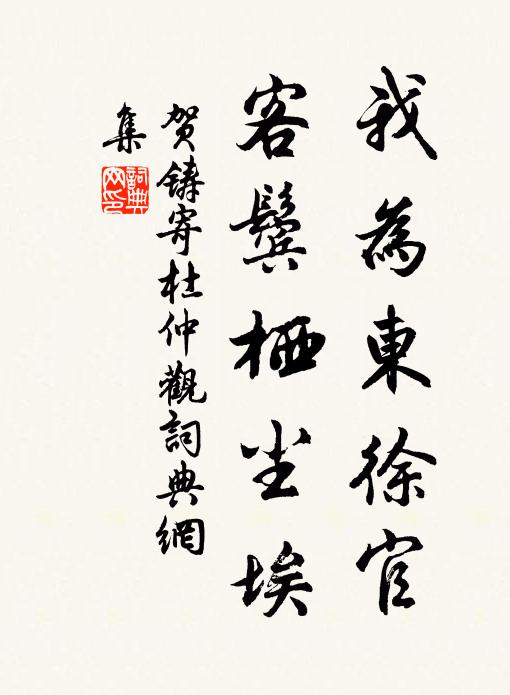 我為東徐官
客鬢栖尘埃
贺鑄寄杜仲觀詞典網
集
詞典
网印